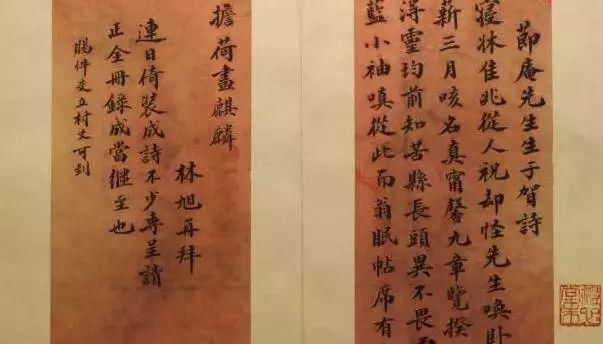 莭庵先生生子賀詩
寢牀佳兆從人祝却怪先生喚卧
薪三月咳名真甯馨九章覽揆
得靈均前知苦縣長頭異不畏
藍小袖嗔從此而翁眠帖席有
擔荷畫麒麟
林旭再拜
連日倚裝成詩不少專呈請
正全冊錄成當繼至也
賜件交立村丈可到